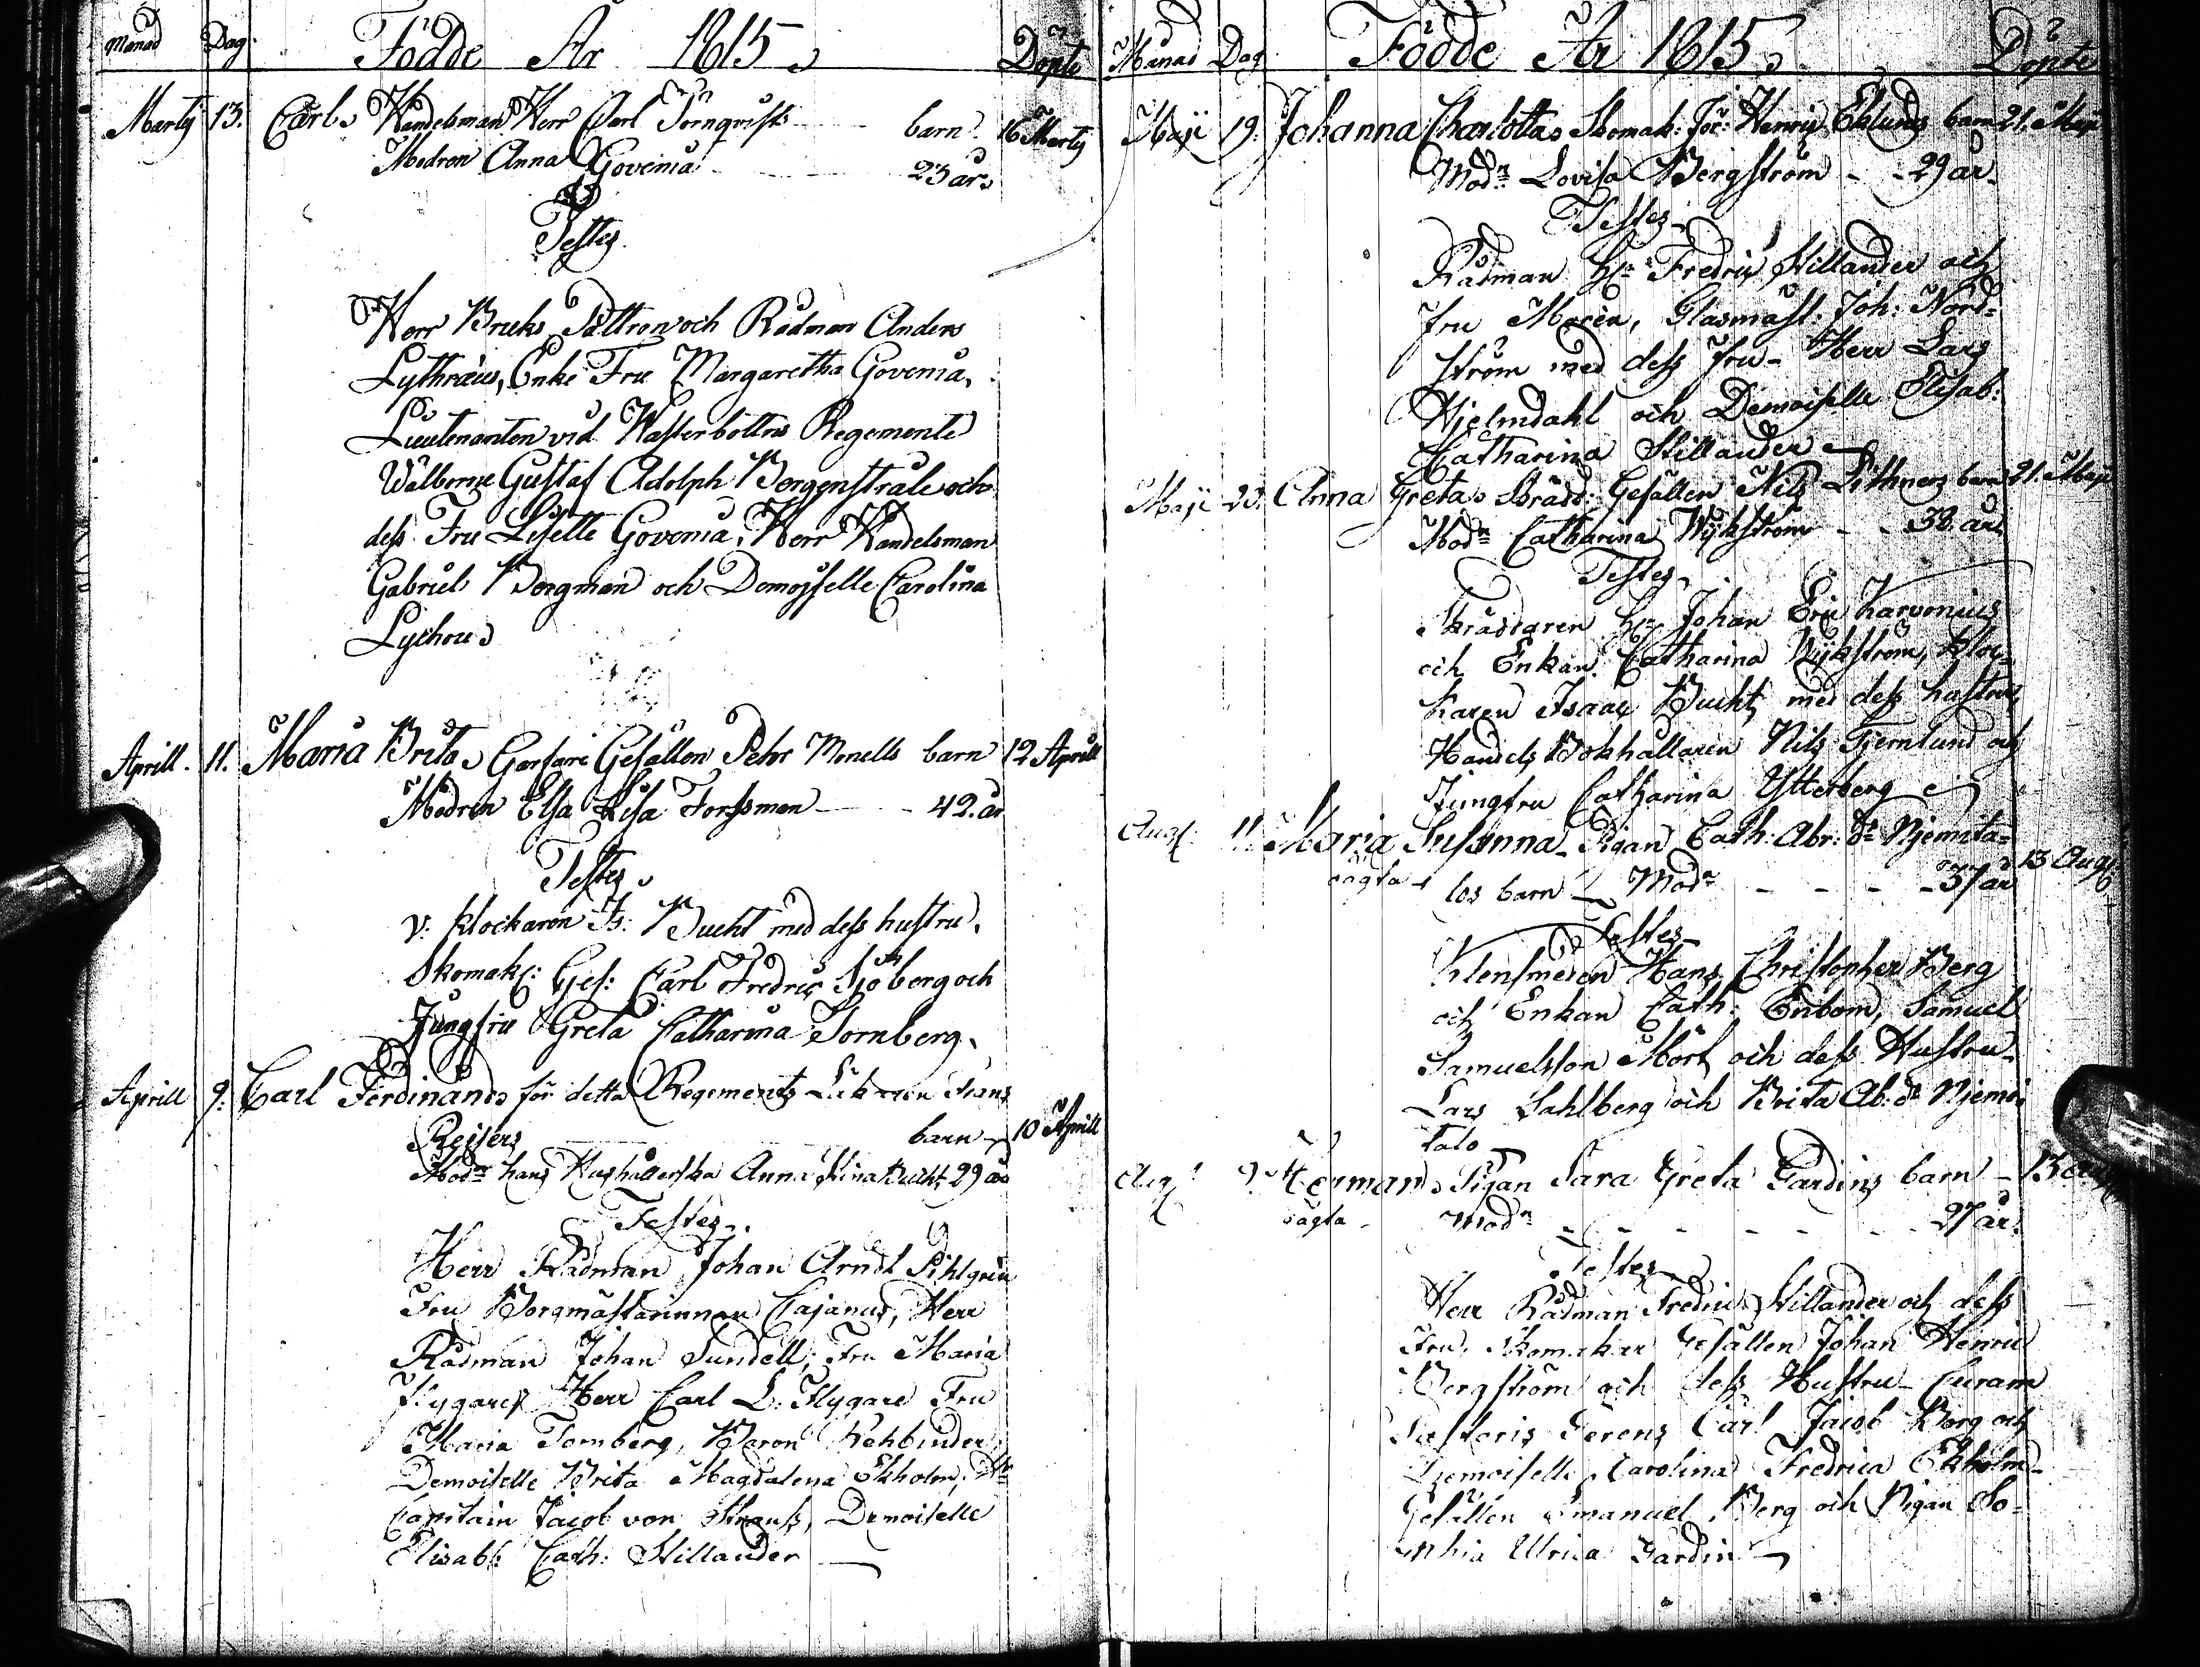 Månad Dag. Födde År 1815. Döpte
Martij 13. Carl. Handelsman Herr Carl Törnqvists barn. 16 Martij
Modren Anna Govenia 23 år.
Testes.
Herr Bruks Pattron och Rådman Anders
Lythræus, Enke Fru Margaretha Govenia,
Lieutenanten vid Wasterbottns Regemente
Wälborne Gustaf Adolph Borgenstråle och
dess Fru Lisette Govenia, Herr Handelsman
Gabriel Borgman och Demoiselle Carolina
Lychou.
Aprill. 11. Maria Brita. Garfare Gesällen Pehr Monells barn 12 Aprill
Modren Elsa Lisa Forssman - 42. år
Testes.
v: klockaren Is: Bucht med dess hustru,
Skomak: Ges: Carl Fredric Sjöberg och
Jungfru Greta Catharina Tornberg.
Aprill 9. Carl Ferdinand. för detta Regements Läkaren Frans
Reisers barn 10 Aprill
Modr hans Hushållerska Anna Stina Bucht 29 år
Testes.
Herr Rådman Johan Arndt Pihlgren
Fru Borgmästarinnan Cajanus, Herr
Rådman Johan Sundell, Fru Maria
Flygare, Herr Carl L. Flygare Fru
Maria Tornberg, Baron Rehbinder,
Demoiselle Brita Magdalena Ekholm, Hr
Capitain Jacob von Strauss, Demoiselle
Elisab: Cath: Stillander
Månad Dag Födde År 1815. Döpte
Maji 19. Johanna Charlotta. Skomak: Henric Eklunds barn 21. Maji
Modn Lovisa Bergström - - 29 år.
Testes
Rådman Hr Fredric Stillander och
Fru Maria, Glasmäst: Joh: Nord=
ström med dess Fru - Herr Lars
Hjelmdahl och Demoiselle Elisab:
Catharina Stillander
Maji 20. Anna Greta. Skrädd: Gesällen Nils Lithners barn 21. Maji
Modn Catharina Wijkström - - 38. år
Testes
Skräddaren Hr Johan Eric Karvonius
och Enkan Catharina Wijkström, Kloc=
karen Isaac Bucht med dess hustru,
Handels Bokhållaren Nils Fjernlund och
Jungfru Catharina Ytterberg
Aug: 11. Maria Susanna. Pigan Cath: Abr: dr Njemita=
oägta los barn Modn - - - - 37 år 13 Aug:
Testes
Klensmeden Hans Christopher Berg
och Enkan Cath: Enbom, Samuel
Samuelsson Mört och dess Hustru
Lars Sahlberg och Brita Ab: dr Njemi
talo
Aug: 9. Herman. Pigan Sara Greta Fardins barn - 13 Aug:
oägta Modn - - - - - 27 år.
Testes
Herr Rådman Fredric Stillander och dess
Fru, Skomakar Gesällen Johan Henric
Bergström och dess Hustru - Curam
Pastoris Gerens Carl Jacob Borg och
Demoiselle Carolina Fredrica Ekholm -
Gesällen Emanuel Berg och Pigan So=
phia Ulrica Fardin